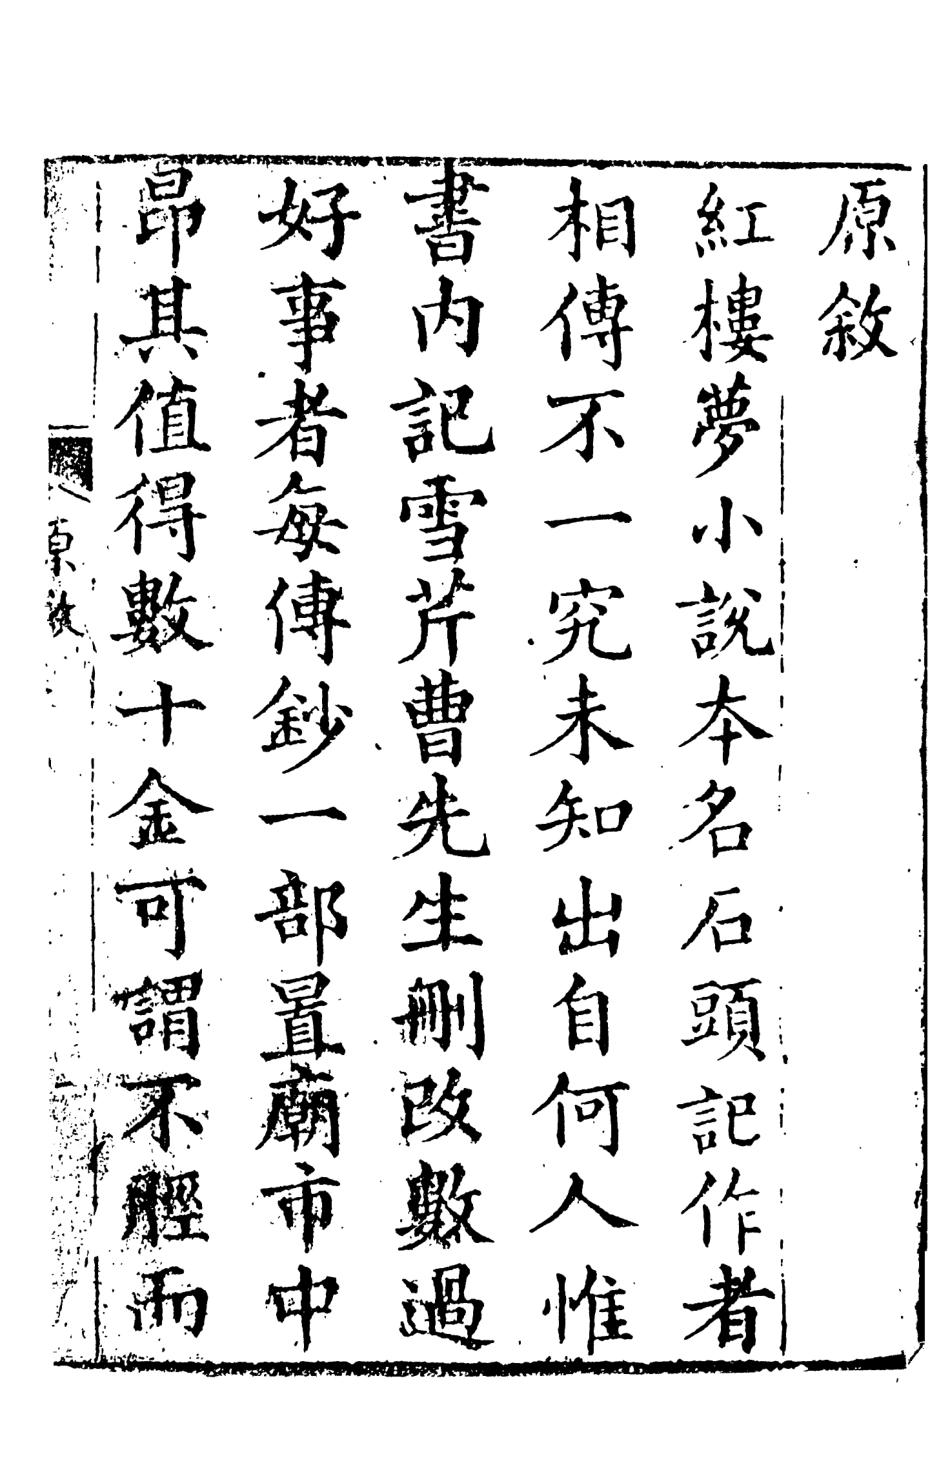 原敘
紅樓夢小說本名石頭記作者
相傳不一究未知出自何人惟
書內記雪芹曹先生刪改數過
好事者每傳鈔一部置廟市中
昂其值得數十金可謂不脛而
原敘